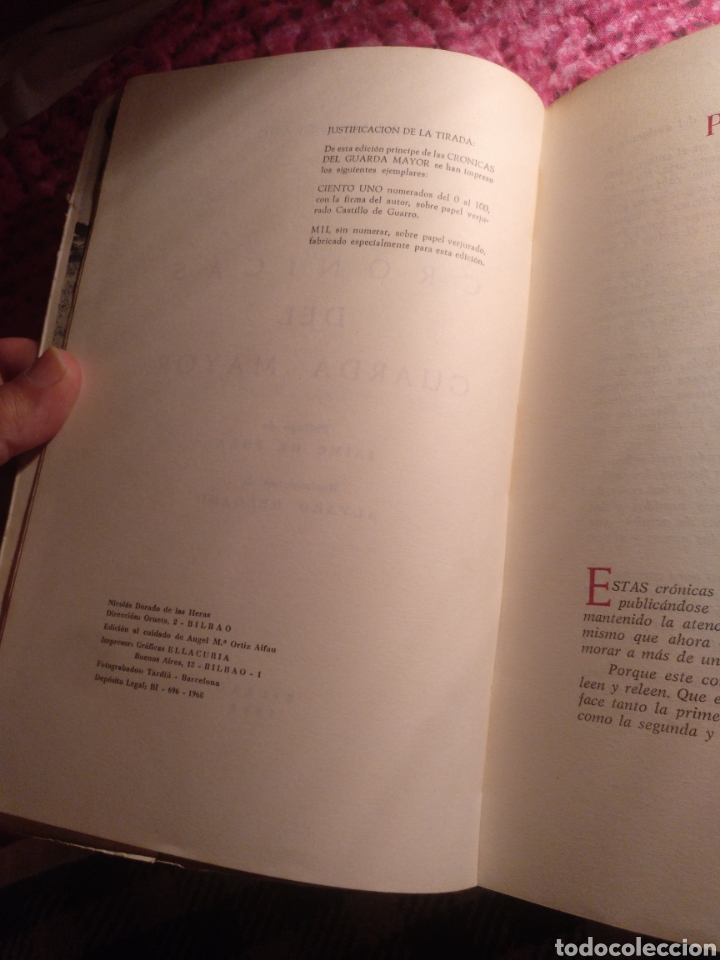 JUSTIFICACION DE LA TIRADA:
De esta edición príncipe de las CRONICAS
DEL GUARDA MAYOR se han impreso
los siguientes ejemplares:
CIENTO UNO numerados del 0 al 100,
con la firma del autor, sobre papel verju-
rado Castillo de Guarro.
MIL sin numerar, sobre papel verjurado,
fabricado especialmente para esta edición.
DEL
GUARDA MAYOR
Nicolás Dorado de las Heras
Dirección: Orueta, 2 - BILBAO
Edición al cuidado de Angel M.ª Ortiz Alfau
Impresor: Gráficas ELLACURIA
Buenos Aires, 12 - BILBAO - 1
Fotograbados: Tardiá - Barcelona
Depósito Legal: BI - 696 - 1968
P
ESTAS crónicas
publicándose
mantenido la atenc
mismo que ahora
morar a más de un
Porque este con
leen y releen. Que e
face tanto la prime
como la segunda y
todocoleccion